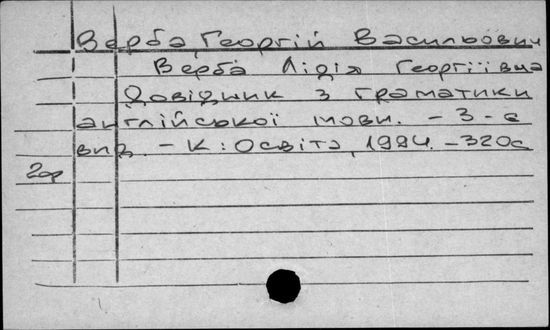 Верба, Георгій Васильович
Верба Лідія Георгіївна
Довідник з граматики
англійської мови. – 3-є
вид. – К : Освіта, 1994. – 320с
2ор